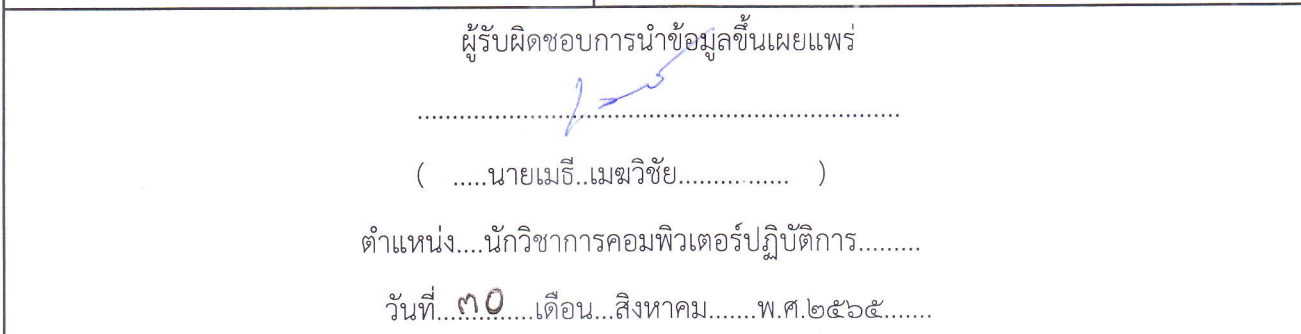 ผู้รับผิดชอบการนำข้อมูลขึ้นเผยแพร่
......................................................................
( .....นายเมธี..เมฆวิชัย................ )
ตำแหน่ง....นักวิชาการคอมพิวเตอร์ปฏิบัติการ.........
วันที่....๓๐......เดือน...สิงหาคม.......พ.ศ.๒๕๖๕.......